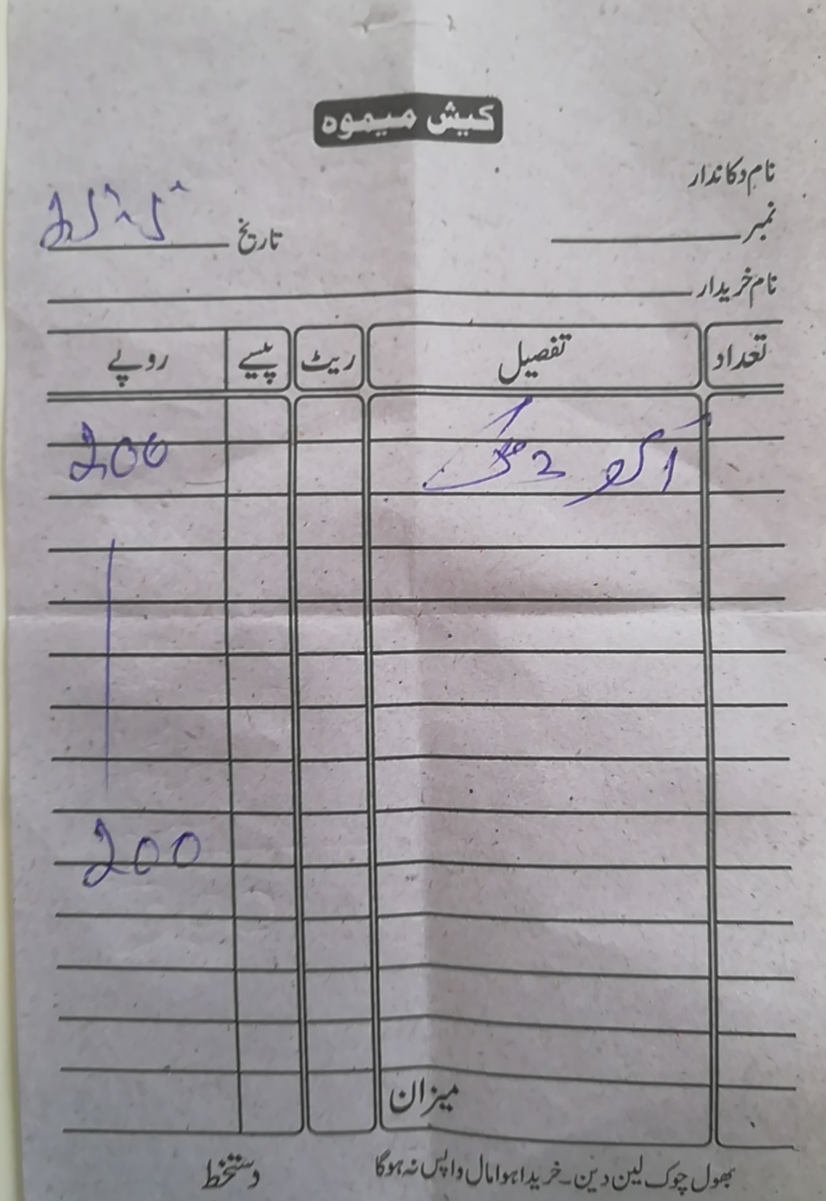 کیش میموہ
نام دکاندار
نمبر تاریخ
نام خریدار
تعداد تفصیل ریٹ پیسے روپے
2 200
200
میزان
بھول چوک لین دین۔خریدا ہوا مال واپس نہ ہوگا دستخط